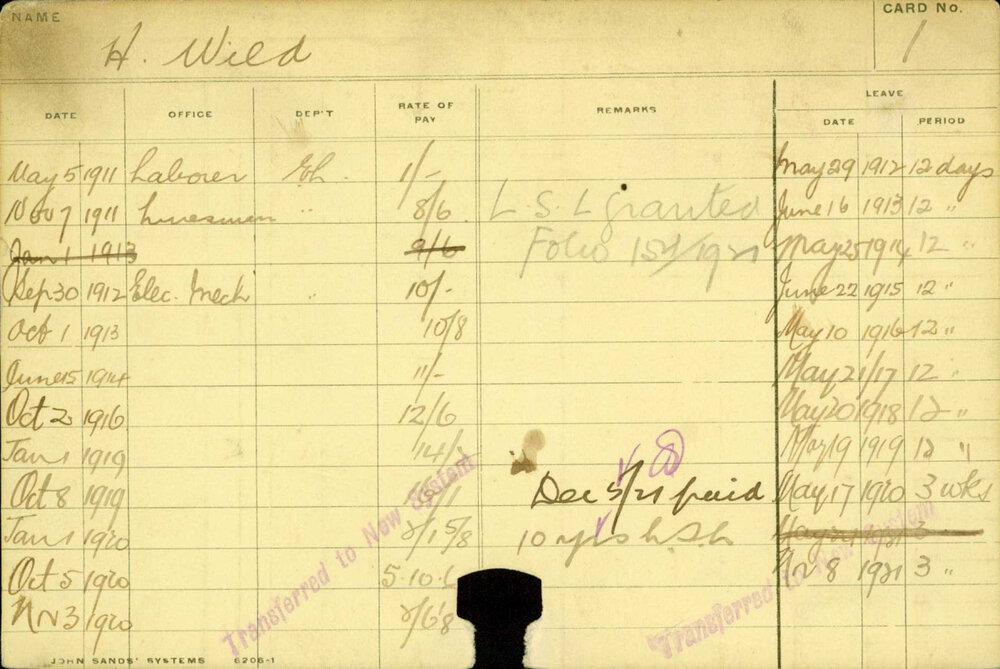 NAME
H. Wild
CARD No.
1
DATE OFFICE DEP'T RATE OF PAY REMARKS LEAVE
DATE PERIOD
May 5 1911 Labourer 1/- May 29 1912 12 days
Nov 7 1911 Linesman " 8/6 L. S. L granted June 16 1913 12 "
Jan 1 1913 9/6 Folio 1921 May 25 1914 12 "
Sep 30 1912 Elec. Mech " 10/- June 22 1915 12 "
Oct 1 1913 10/8 May 10 1916 12 "
June 15 1914 11/- May 21/17 12 "
Oct 2 1916 12/6 May 20 1918 12 "
Jan 1 1919 14/ 1919 12 "
Oct 8 1919 Dec 5/21 paid May 17 1920 3 wks
Jan 1 1920 10 yrs L.S.L.
Oct 5 1920 5.10. Nv 8 1921 3 "
Nv 3 1920
Transferred to New System
Transferred to New System
JOHN SANDS' SYSTEMS 6206-1